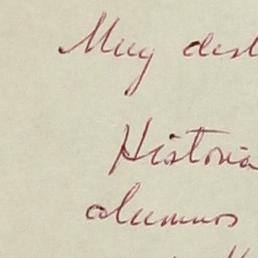 Muy dest
Historia
alumnos